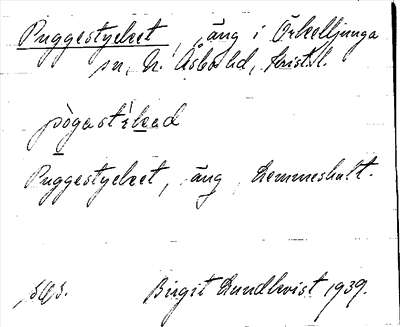 Puggestycket, äng i Örkelljunga
sn, N. Åsbo hd, Krist. l.
pògastı̀kəd
Puggestycket, äng, Lemmeshult.
Birgit Lundkvist 1939.